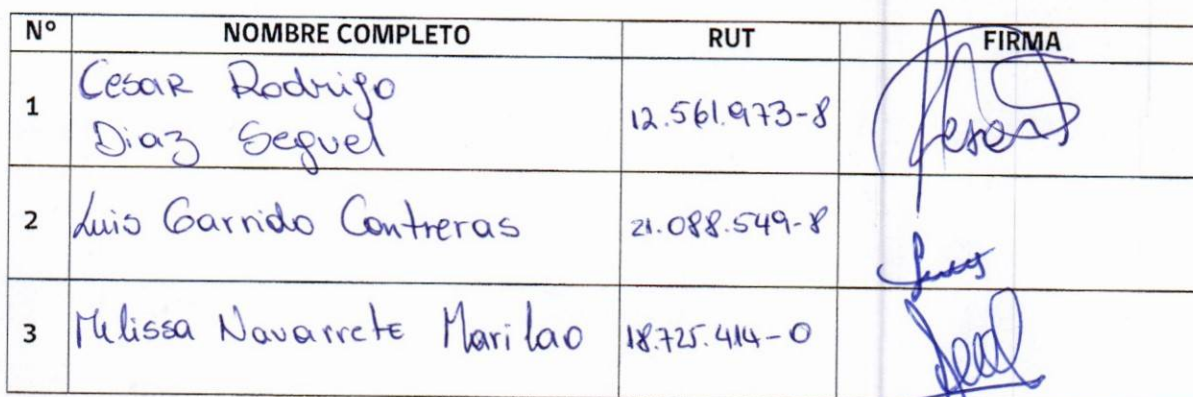 Nº NOMBRE COMPLETO RUT FIRMA
1 Cesar Rodrigo
Diaz Seguel 12.561.973-8
2 Luis Garrido Contreras 21.088.549-8
3 Melissa Navarrete Marilao 18.725.414-0